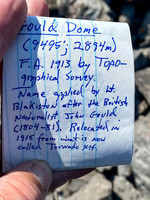 Gould Dome
(9495'; 2894m)
F.A. 1913 by Topo-
graphical Survey.
Name applied by Lt.
Blakiston after the British
Naturalist John Gould
(1804-81). Relocated in
1915 from what is now
called Tornado Mtn.